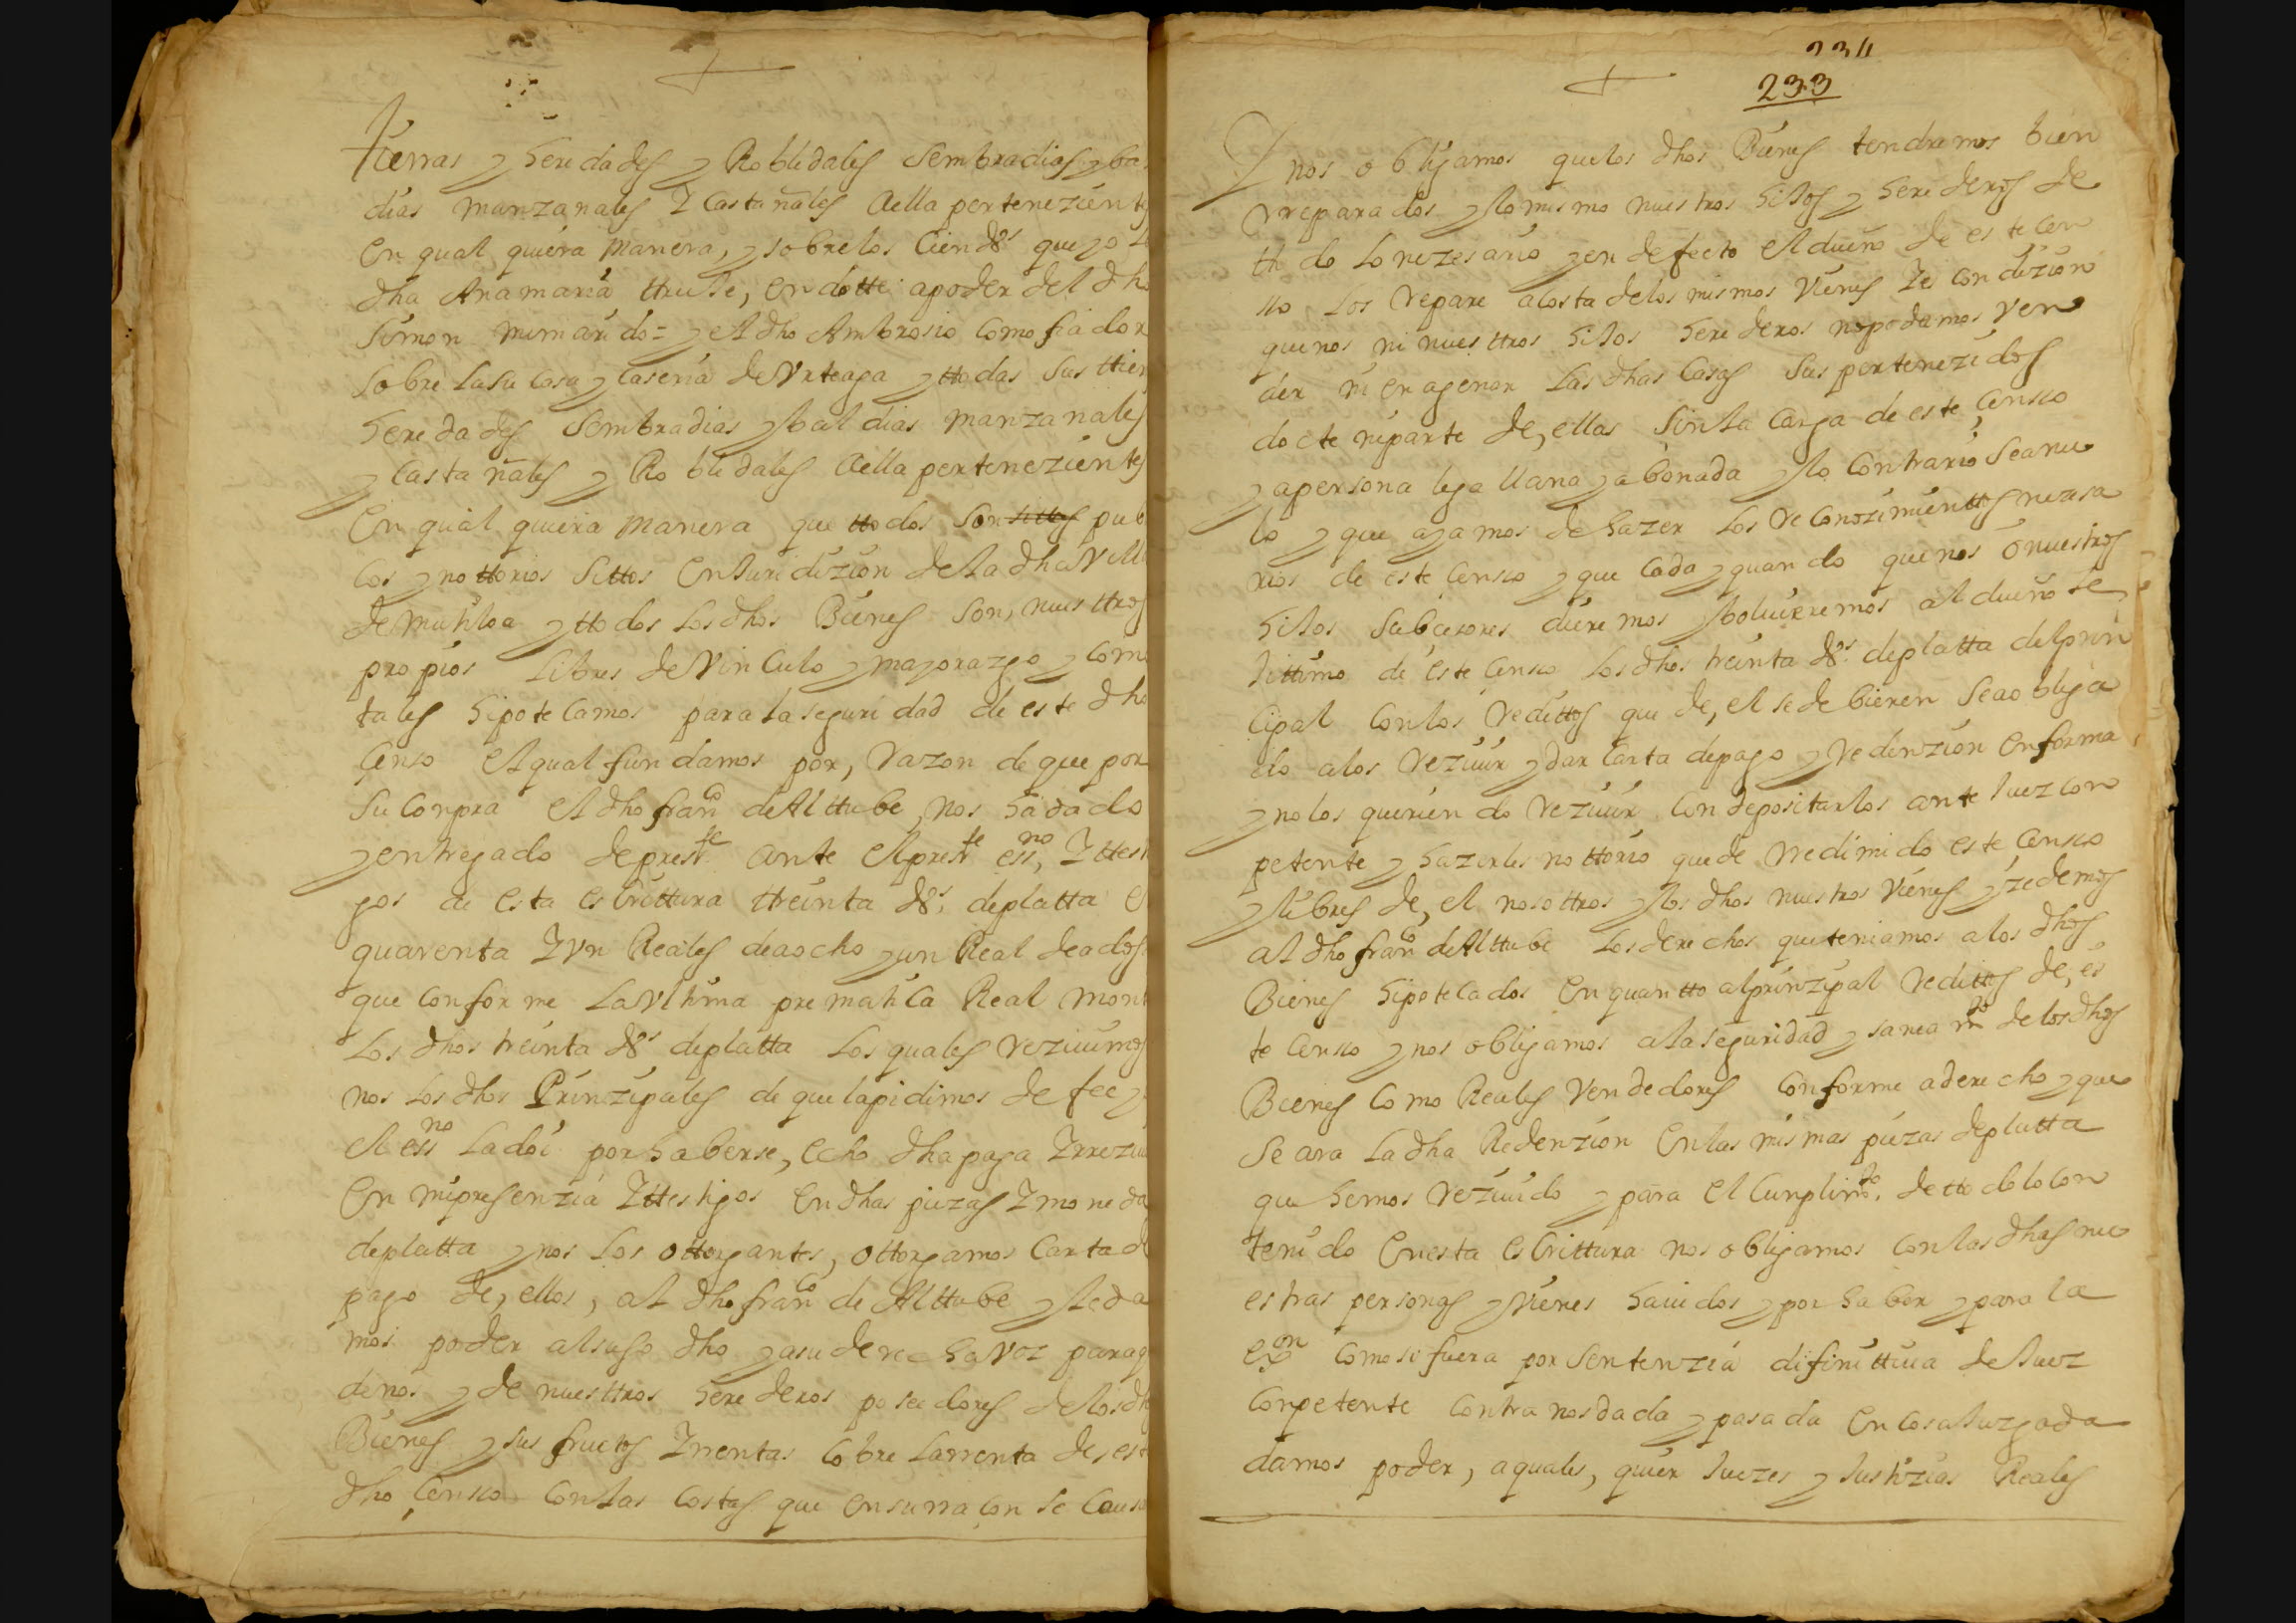 tierras y heredades y Robledales sembradias y bal
dias manzanales Y Castañales aella pertenezientes
en qual quiera manera, y sobrelos Cien ds que yo la
dha Anamaria ttruje, en dotte apoder del dho
Simon mimarido = y el dho Ambrosio como fiador
sobre lasu Casa y Caseria de Vrteaga y ttodas sus ttier
heredades sembradias y baldias manzanales
y Castañales y Robledales aella pertenezientes
en qual quiera manera que ttodos son sittos pub
cos y nottorios sittos en Juridizion dela dha Villa
de mutiloa y ttodos los dhos Bienes son, nuesttros
propios libres de Vinculo y mayorazgo y como
tales hipotecamos para la seguridad de este dho
Censo el qual fundamos por, razon de que por
su conpra el dho franco de Alttube nos ha dado
y entregado de preste ante el preste essno, Y ttesti
gos de esta escrittura ttreinta ds. deplatta en
quarenta Y Vn Reales de aocho y un Real de ados
que conforme la Vltima prematica Real mont
los dhos treinta ds deplatta los quales reziuimos
nos los dhos Prinzipales de que la pidimos de fee y
el essno la doi por haberse, echo dha paga Y rreziu
en mi presenzia Y ttestigos en dhas piezas Y moneda
deplatta y nos los ottorgantes, ottorgamos Carta de
pago de, ellos, al dho franco de Alttube y le da
mos poder al suso dho y a su derecha voz paraq
denos y de nuesttros herederos poseedores delos dhos
Bienes y sus fructos Y rrentas cobre la rrenta de, este
dho Censso con las costas que en su rraçon se caus
2311
233
Y nos obligamos que los dhos Bienes tendremos bien
rreparados y lo mismo nuestros hijos y herederos de
tti do lo nezesario y en defecto el dueño de este Cen
sso los repare a costa delos mismos Vienes Y es condizion
que nos ni nuesttros hijos herederos no podamos Ven
der ni enagenar las dhas Casas sus pertenezidos
do e te ni parte de, ellas sin la Carga de este Censso
y a persona lega llana y abonada y lo contrario sea nu
lo y que ayamos de hazer los reconozimienttos nezesa
rios de este Censso y que Cada y quando que nos o nuestros
hijos subzesores dieremos y boluieremos al dueño le
Jittimo de este Censso los dhos treinta ds. deplatta del prin
cipal con los redittos que de, el se debieren sea obliga
do a los reziuir y dar Carta de pago y redenzion en forma
y no los queriendo reziuir con depositarlos ante Juez con
petente y hazerles nottorio quede rredimido este Censso
y libres de, el nosottros y los dhos nuestros Vienes y zedemos
al dho franco de Alttube los derechos que teniamos a los dhos
Bienes hipotecados en quantto al prinzipal redittos de, es
te Censso y nos obligamos a la seguridad y saneamto de los dhos
Bienes como Reales Vendedores conforme a derecho y que
se ara la dha Redenzion en las mismas piezas de platta
que hemos reziuido y para el Cunplimto. de ttodo lo con
tenido en esta escrittura nos obligamos con las dhas nu
estras personas y Vienes hauidos y por haber y para la
exon como si fuera por sentenzia difinittiua de Juez
conpetente contra nos dada y pasada en Cosa Juzgada
damos poder, a quales, quier Juezes y Justizias Reales